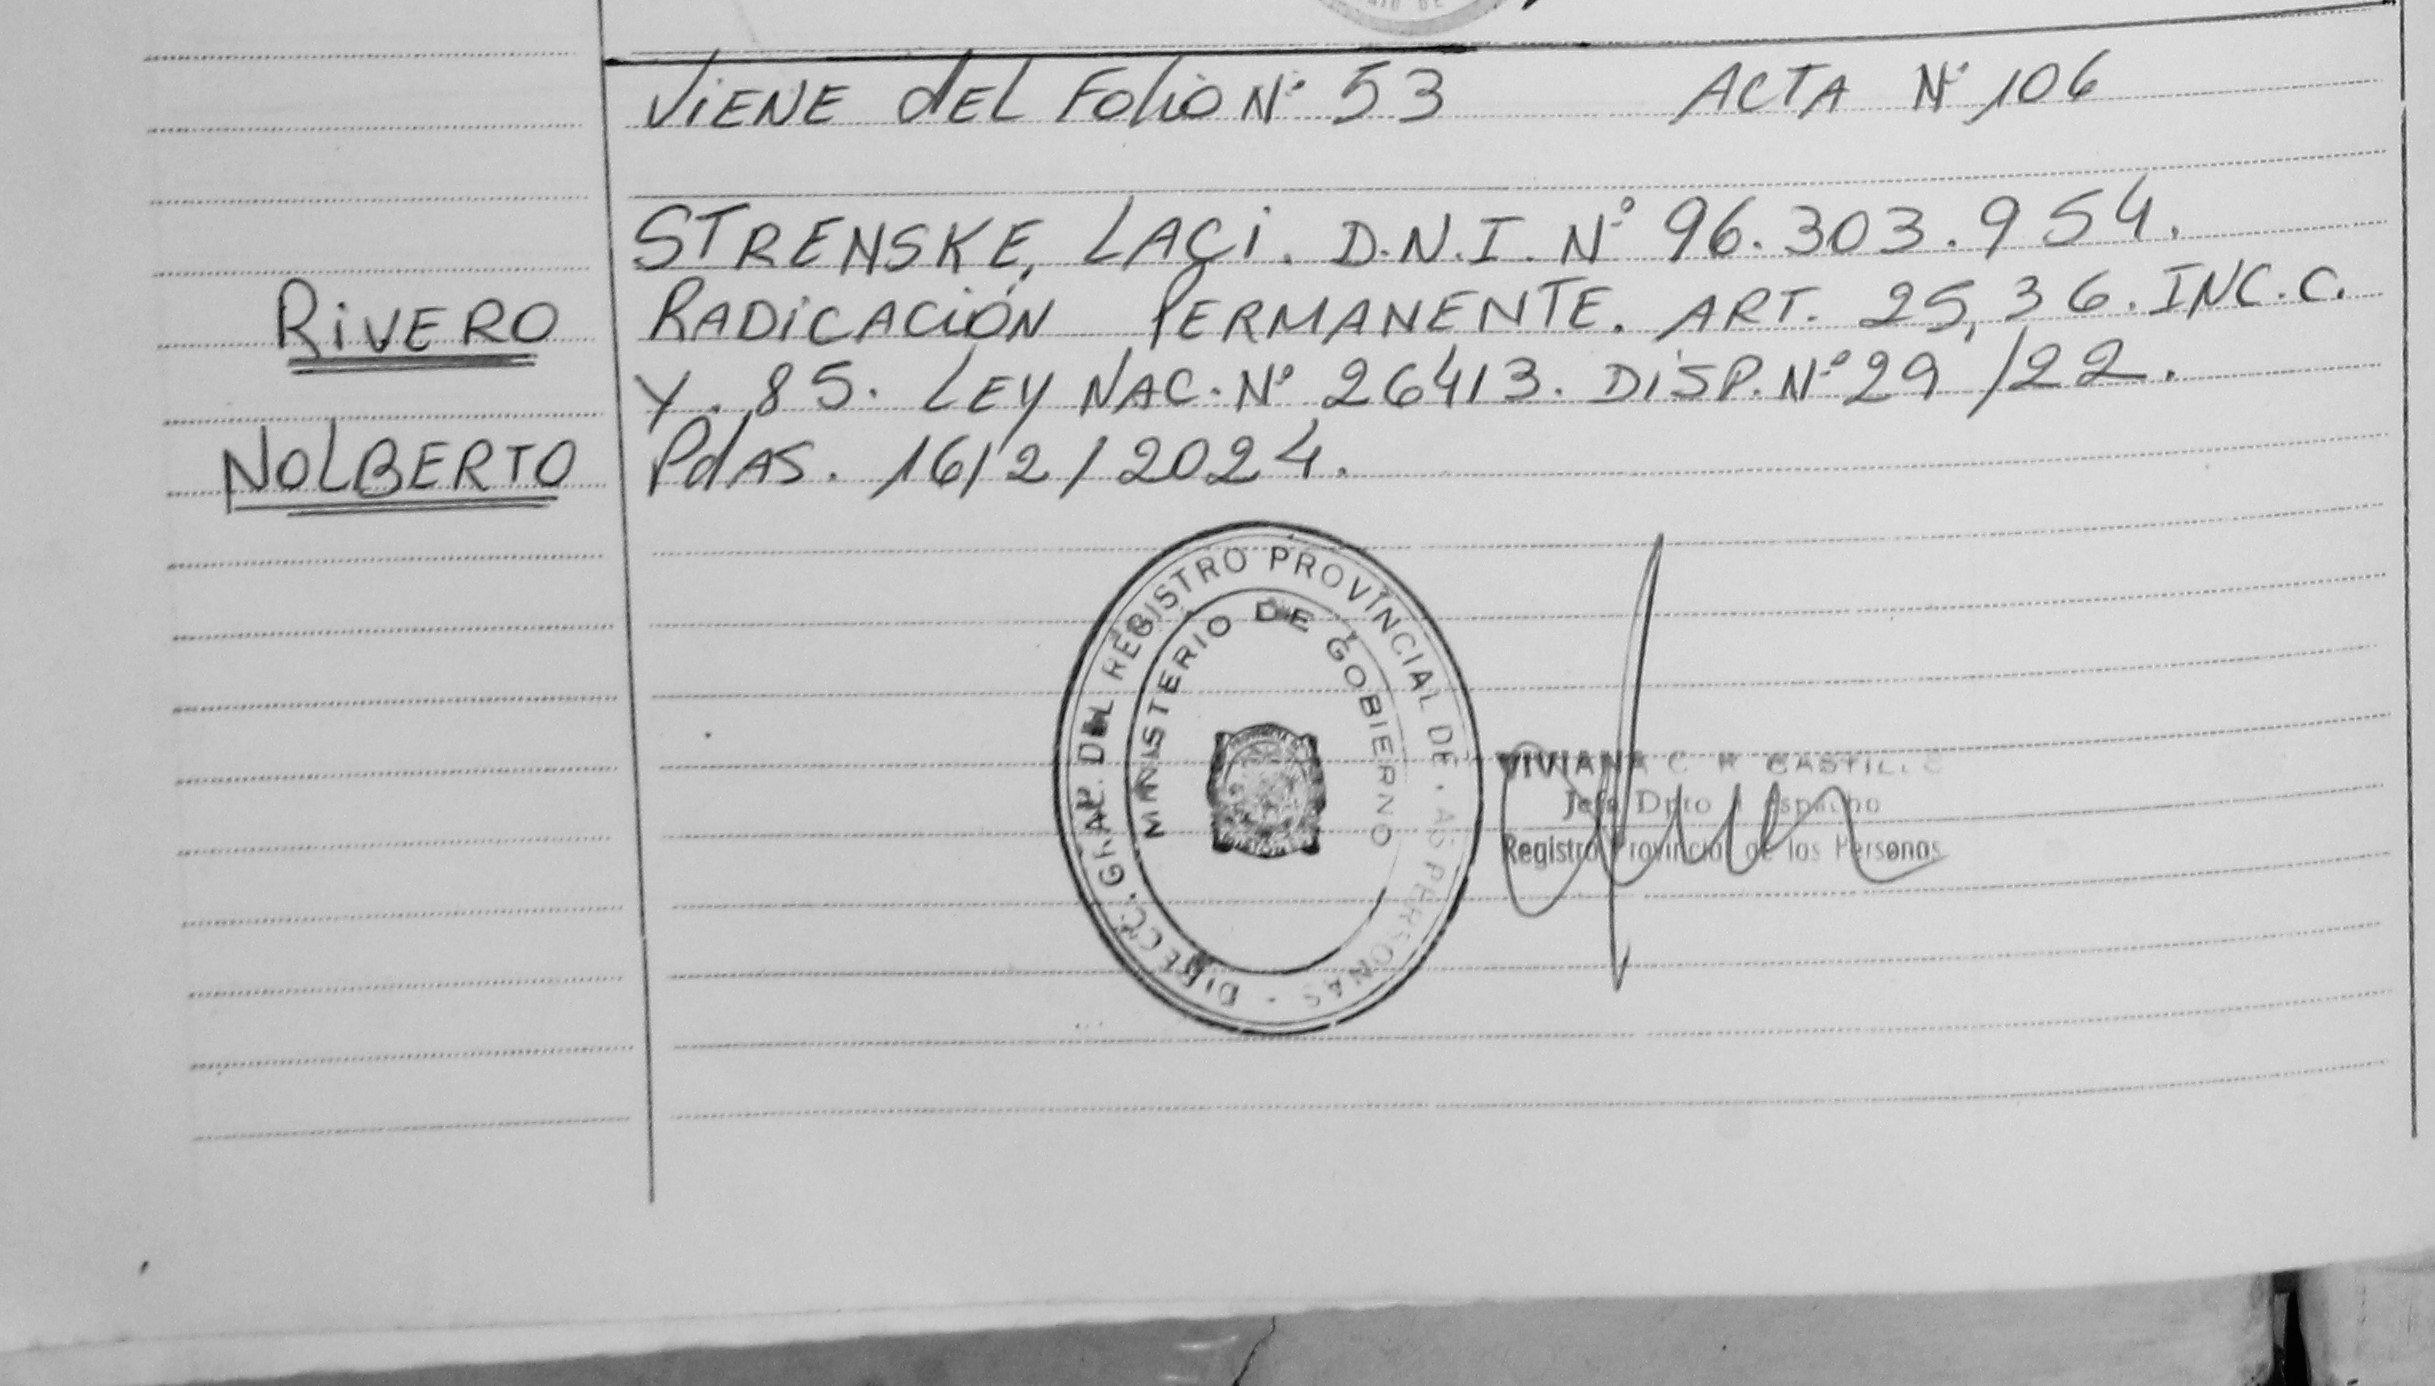 ViENE dEL FoliO N° 53 ACTA N° 106
STRENSKE, LACi. D.N.I. N° 96.303.954.
RiVERO
RADiCACiÓN PERMANENTE. ART. 25, 36. INC. C.
Y. 85. LEY NAC. N° 26413. DiSP. N° 29/22.
NOLBERTO
PdAS. 16/2/2024.
DIRECC. GRAL. DEL REGISTRO PROVINCIAL DE LAS PERSONAS
MINISTERIO DE GOBIERNO
VIVIANA C R CASTILLO
Jefa Dpto Despacho
Registro Provincial de las Personas